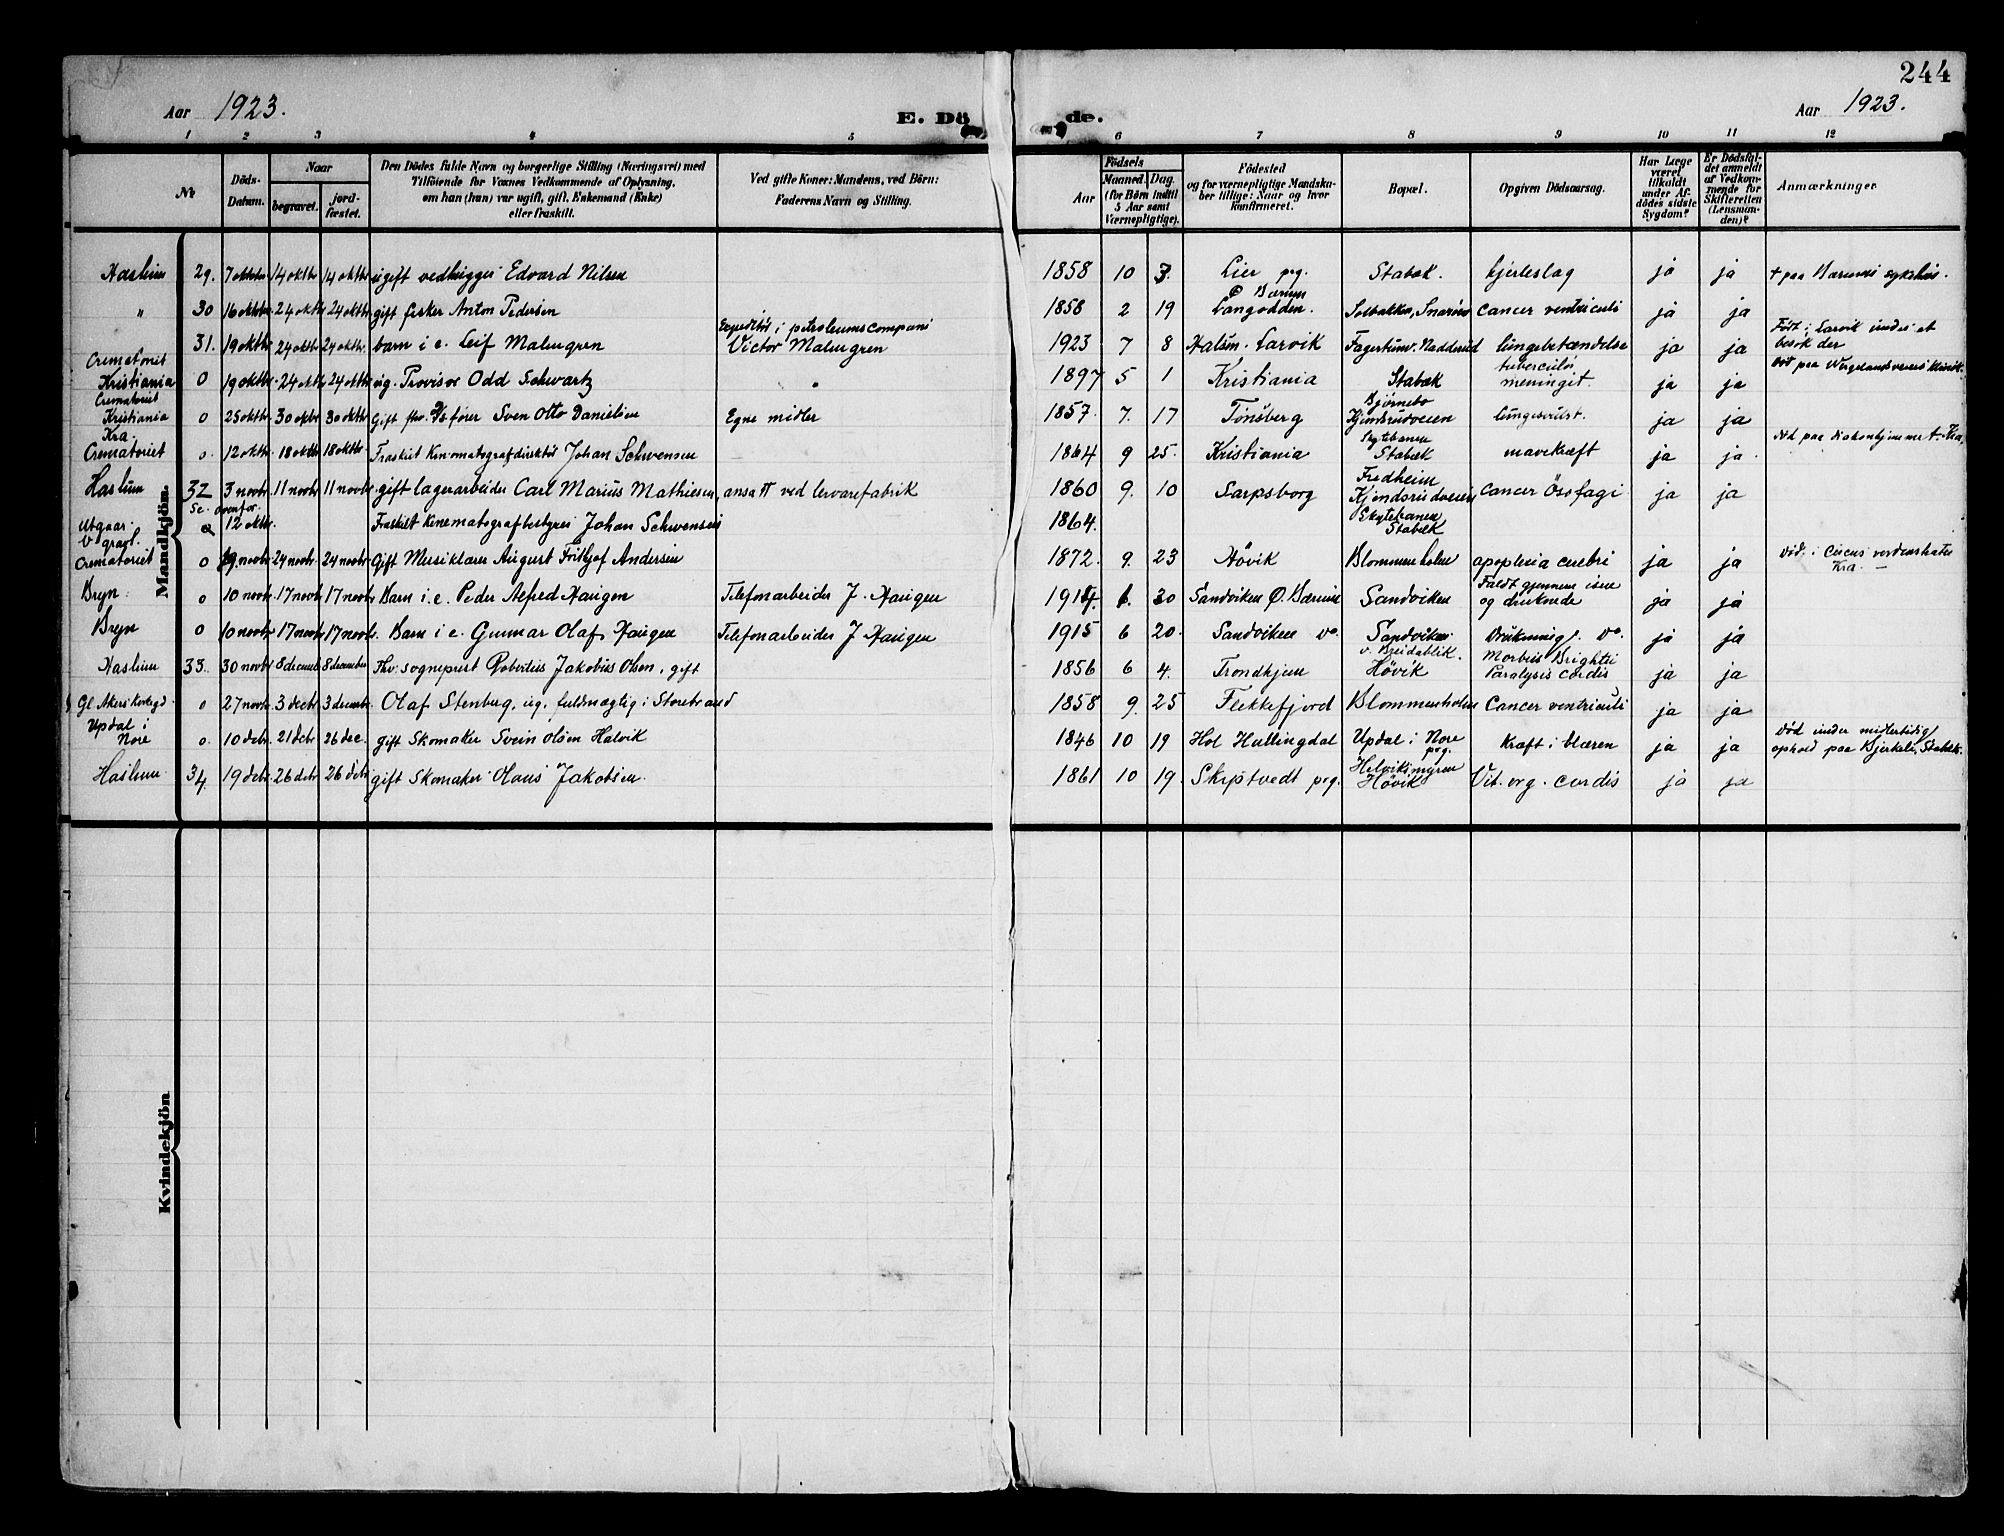 244
Aar 1923. E. Dö de. Aar 1923.
1 2 3 4 5 6 7 8 9 10 11 12
No
Döds-Datum.
Naar
begravet. jord-fæstet.
Den Dödes fulde Navn og borgerlige Stilling (Næringsvei) med
Tilföiende for Voxnes Vedkommende af Oplysning,
om han (hun) var ugift, gift, Enkemand (Enke)
eller fraskilt.
Ved gifte Koner: Mandens, ved Börn:
Faderens Navn og Stilling.
Födsels
Aar Maaned. Dag.
(for Börn indtil
5 Aar samt
Værnepligtige).
Födested
og for værnepligtige Mandska-
ber tillige: Naar og hvor
konfirmeret.
Bopæl.
Opgiven Dödsaarsag.
Har Læge
været
tilkaldt
under Af-
dödes sidste
Sygdom?
Er Dödsfal-
det anmeldt
af Vedkom-
mende for
Skifteretten
(Lensman-
den)?
Anmærkninger
Mandkjön.
Haslum 29. 7 oktbr 14 oktbr 14 oktbr ugift vedhugger Edvard Nilsen 1858 10 3. Lier prg. Stabæk. hjerteslag ja ja + paa Bærums sykehus.
" 30 16 oktbr 24 oktbr 24 oktbr gift fisker Anton Pedersen 1858 2 19 Ø Bærum Langodden. Solbakken, Snarøen cancer ventriculi ja ja
31. 19 oktbr 24 oktbr 24 oktbr barn i e. Leif Malmgren Expeditør i petroleumscompani Victor Malmgren 1923 7 8 Halsen. Larvik Fagertun v. Nadderud lungebetændelse ja ja Født i Larvik under et besøk der
Crematoriet Kristiania 0 19 oktbr. 24 oktbr 24 oktbr ug. Provisor Odd Schwartz " 1897 5 1 Kristiania Stabæk tuberculøs meningit. ja ja Død paa Vergelandsveiens klinik.
Crematoriet Kristiania 0 25 oktbr. 30 oktbr 30 oktbr Gift fhv. S/s fører Sven Otto Danielsen Egne midler 1857. 7. 17 Tønsberg Bjørnebo Kjindsrudveien lungecirrst. ja ja
Kra. Crematoriet 0. 12 oktbr. 18 oktbr 18 oktbr Fraskilt Kinematografdirektør Johan Schwensen 1864 9 25. Kristiania Skytebanen Stabæk mavekræft ja ja. død paa diakonhjemmet Kra.
Haslum 32 3 novbr 11 novbr 11 novbr. gift lagerarbeider Carl Marius Mathiesen, ansatt ved lervarefabrik 1860 9. 10 Sarpsborg Fredheim Kjindsrudveien cancer øsofagi ja ja
Utgaar. Se ovenfor 0 12 oktr. Fraskilt Kinematografbestyrer Johan Schwensen 1864. Skytebanen Stabæk
V gravl. Crematoriet 0 19 novbr. 24 novbr. 24 novbr Gift Musiklærer August Fritjof Andersen 1872 9. 23 Høvik Blommenholm apoplexia cerebri ja ja Død i Circus verdensteater Kra.
Bryn. 0 10 novbr. 17 novbr. 17 novbr Barn i e. Peder Alfred Haugen Telefonarbeider J. Haugen 1914. 6. 30 Sandviken Ø. Bærum Sandviken Faldt gjennem isen og druknede ja ja
Bryn 0 10 novbr 17 novbr 17 novbr. Barn i e. Gunnar Olaf Haugen Telefonarbeider J Haugen 1915 6 20. Sandviken vo. Sandviken v. Breidablik. Drukning. vo. ja ja
Haslum 33. 30 novbr 8 decemb 8 december Fhv. sogneprest Robertus Jakobus Olsen, gift 1856 6 4. Trondhjem Høvik Morbus Brightii Paralysis cordis ja ja
Gl Akers Kirkegd 0 27 novb. 3 decbr. 3 decembr. Olaf Stenberg, ug. fuldmægtig i Storebrand 1858 9. 25 Flekkefjord Blommenholm Cancer ventriculi ja ja
Updal i Nore 0. 10 dcbr. 21 dcbr 26 dec. gift Skomaker Svein Olsen Halvik 1846 10 19 Hol Hallingdal Updal i Nore prg. Kræft i blæren ja ja Død under midlertidig ophold paa Bjerkeli, Stabæk.
Haslum 34. 19 dcbr. 26 dcbr 26 dcbr gift Skomaker Hans Jakobsen. 1861 10 19. Skiptvedt prg. Helviksmyren Høvik Vit. org. cordis ja ja
Kvindekjön